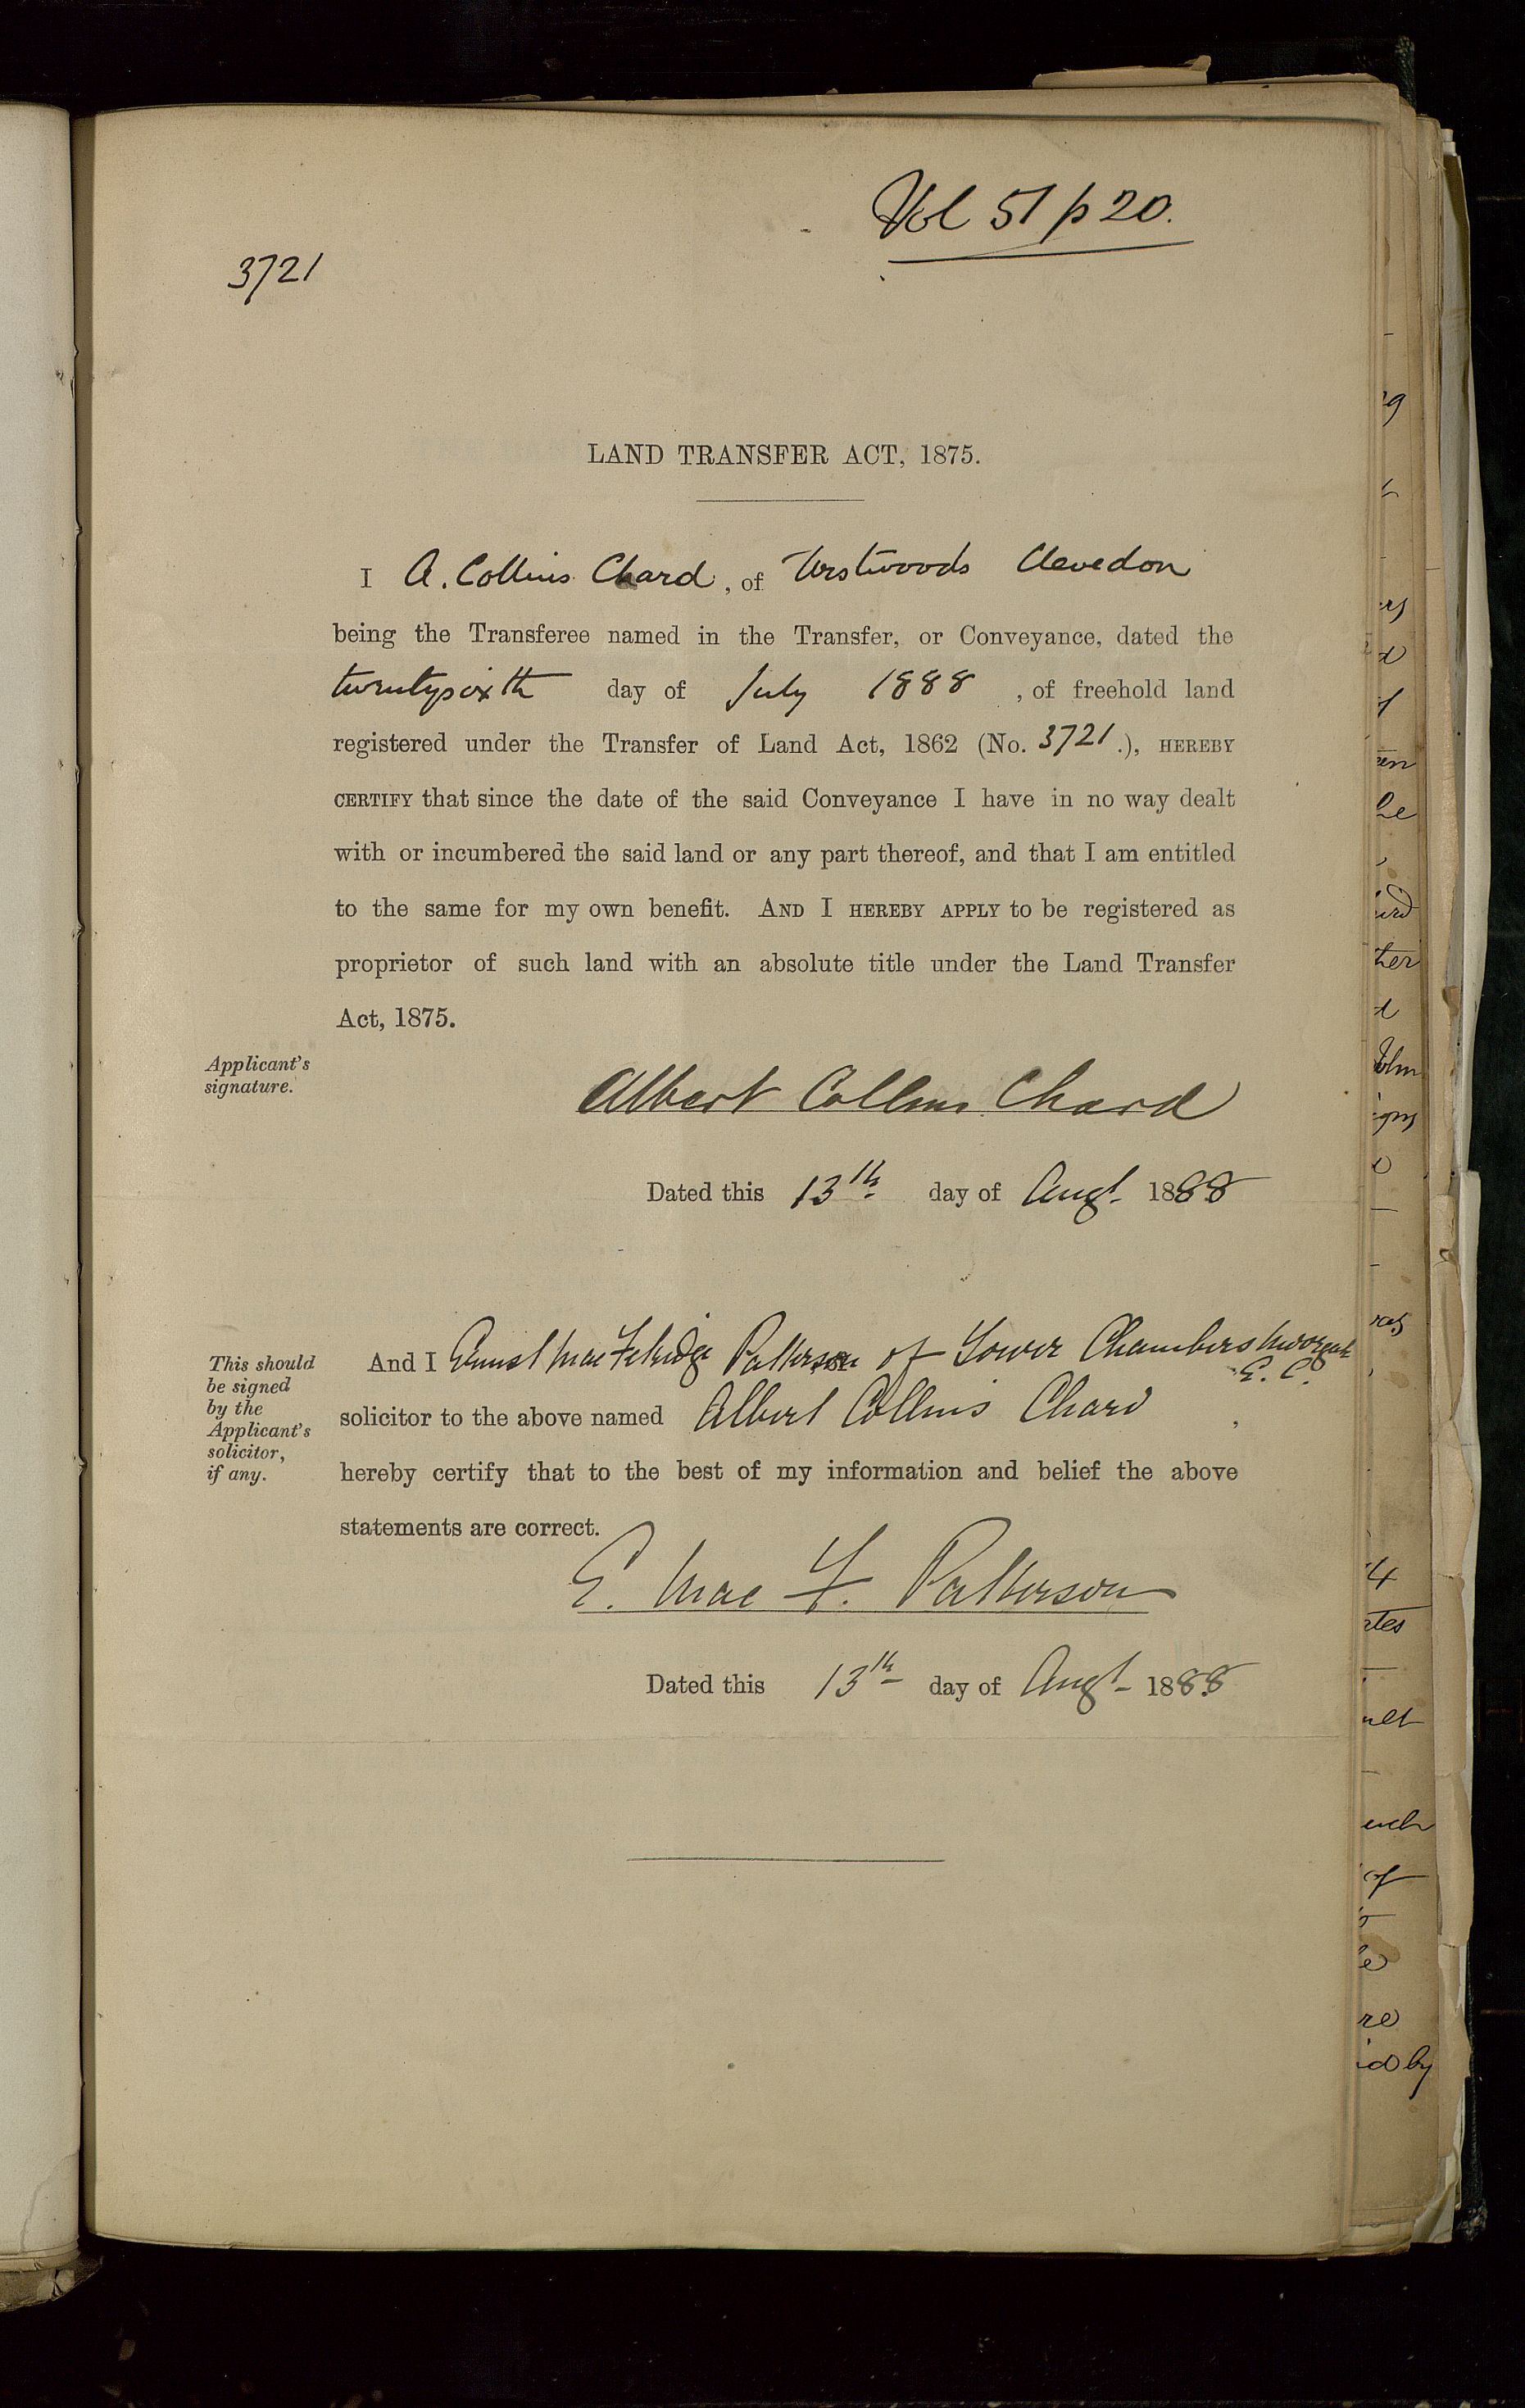 Vol 51 p 20.
3721
LAND TRANSFER ACT, 1875.
I A. Collins Chard, of Westwoods Clevedon
being the Transferee named in the Transfer, or Conveyance, dated the
twentysixth day of July 1888, of freehold land
registered under the Transfer of Land Act, 1862 (No. 3721.), HEREBY
CERTIFY that since the date of the said Conveyance I have in no way dealt
with or incumbered the said land or any part thereof, and that I am entitled
to the same for my own benefit. AND I HEREBY APPLY to be registered as
proprietor of such land with an absolute title under the Land Transfer
Act, 1875.
Applicant's
signature.
Albert Collins Chard
Dated this 13th day of Augt 1888
This should
be signed
by the
Applicant's
solicitor,
if any.
And I Patterson of Tower Chambers Moorgate
E. C.
solicitor to the above named Albert Collins Chard,
hereby certify that to the best of my information and belief the above
statements are correct.
E. Mac F. Patterson
Dated this 13th day of Augt 1888